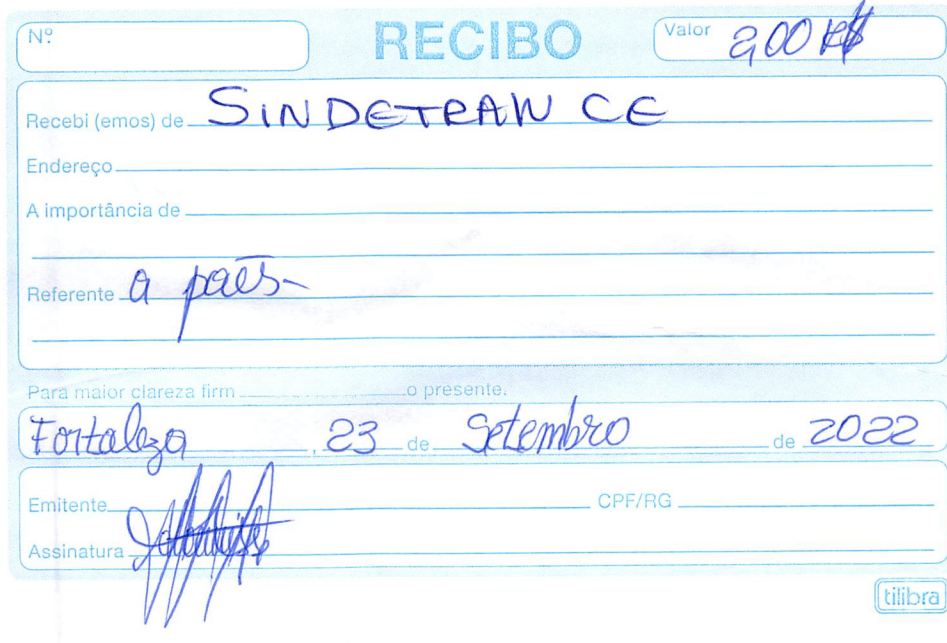 Nº RECIBO Valor 2,00 R$
Recebi (emos) de SINDETRAN CE
Endereço
A importância de
Referente a pães
Para maior clareza firm o presente.
Fortaleza, 23 de Setembro de 2022
Emitente CPF/RG
Assinatura
tilibra